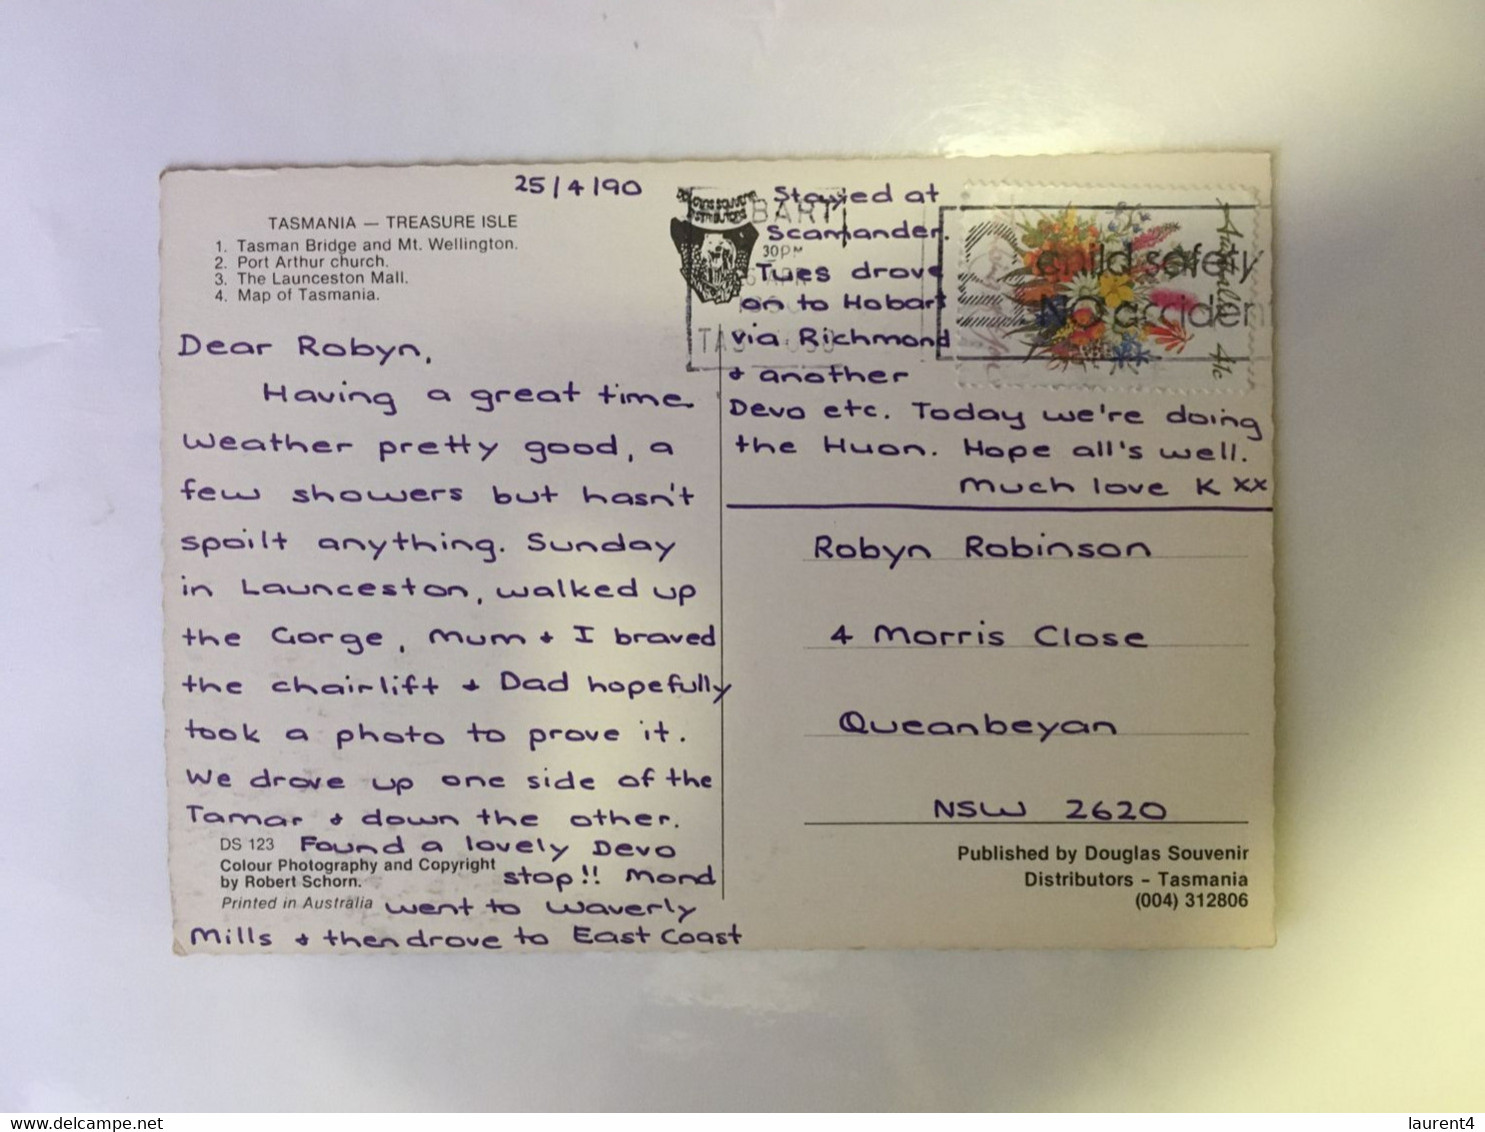 25/4/90
TASMANIA — TREASURE ISLE
1. Tasman Bridge and Mt. Wellington.
2. Port Arthur church.
3. The Launceston Mall.
4. Map of Tasmania.
Dear Robyn,
Having a great time
Weather pretty good, a
few showers but hasn't
spoilt anything. Sunday
in Launceston, walked up
the Gorge, Mum & I braved
the chairlift & Dad hopefully
took a photo to prove it.
We drove up one side of the
Tamar & down the other.
DS 123 Found a lovely Devo
Colour Photography and Copyright
by Robert Schorn.
stop!! Mond
Printed in Australia went to Waverly
Mills & then drove to East Coast
Stayed at
Scamander.
Tues drove
on to Hobart
via Richmond
& another
Devo etc. Today we're doing
the Huon. Hope all's well.
Much love K xx
BART
30PM
TAS
child safety
NO acciden
Australia 41c
Robyn Robinson
4 Morris Close
Queanbeyan
NSW 2620
Published by Douglas Souvenir
Distributors - Tasmania
(004) 312806
laurent4